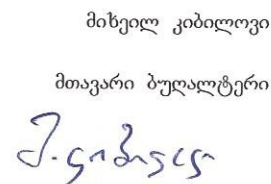 მიხეილ კიბილოვი
მთავარი ბუღალტერი